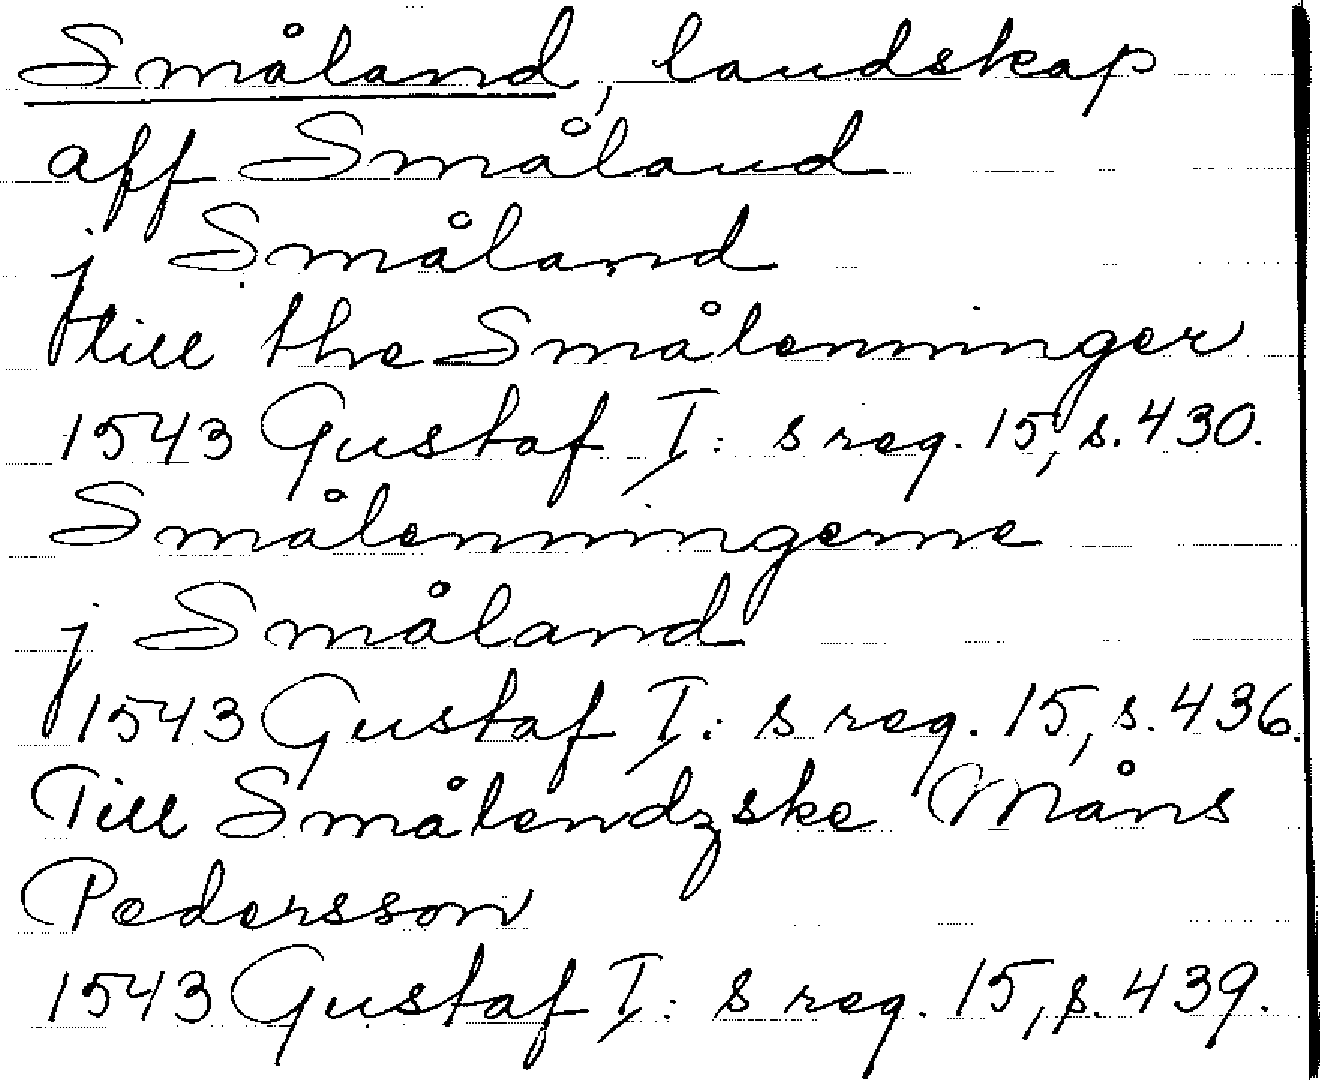 Småland, landskap
aff Småland
j Småland
till the Smålenninger
1543 Gustaf I:s reg. 15, s. 430.
Smålenningerne
j Småland
1543 Gustaf I:s reg. 15, s. 436.
Till Smålendzske Måns
Pedersson
1543 Gustaf I:s reg. 15, s. 439.